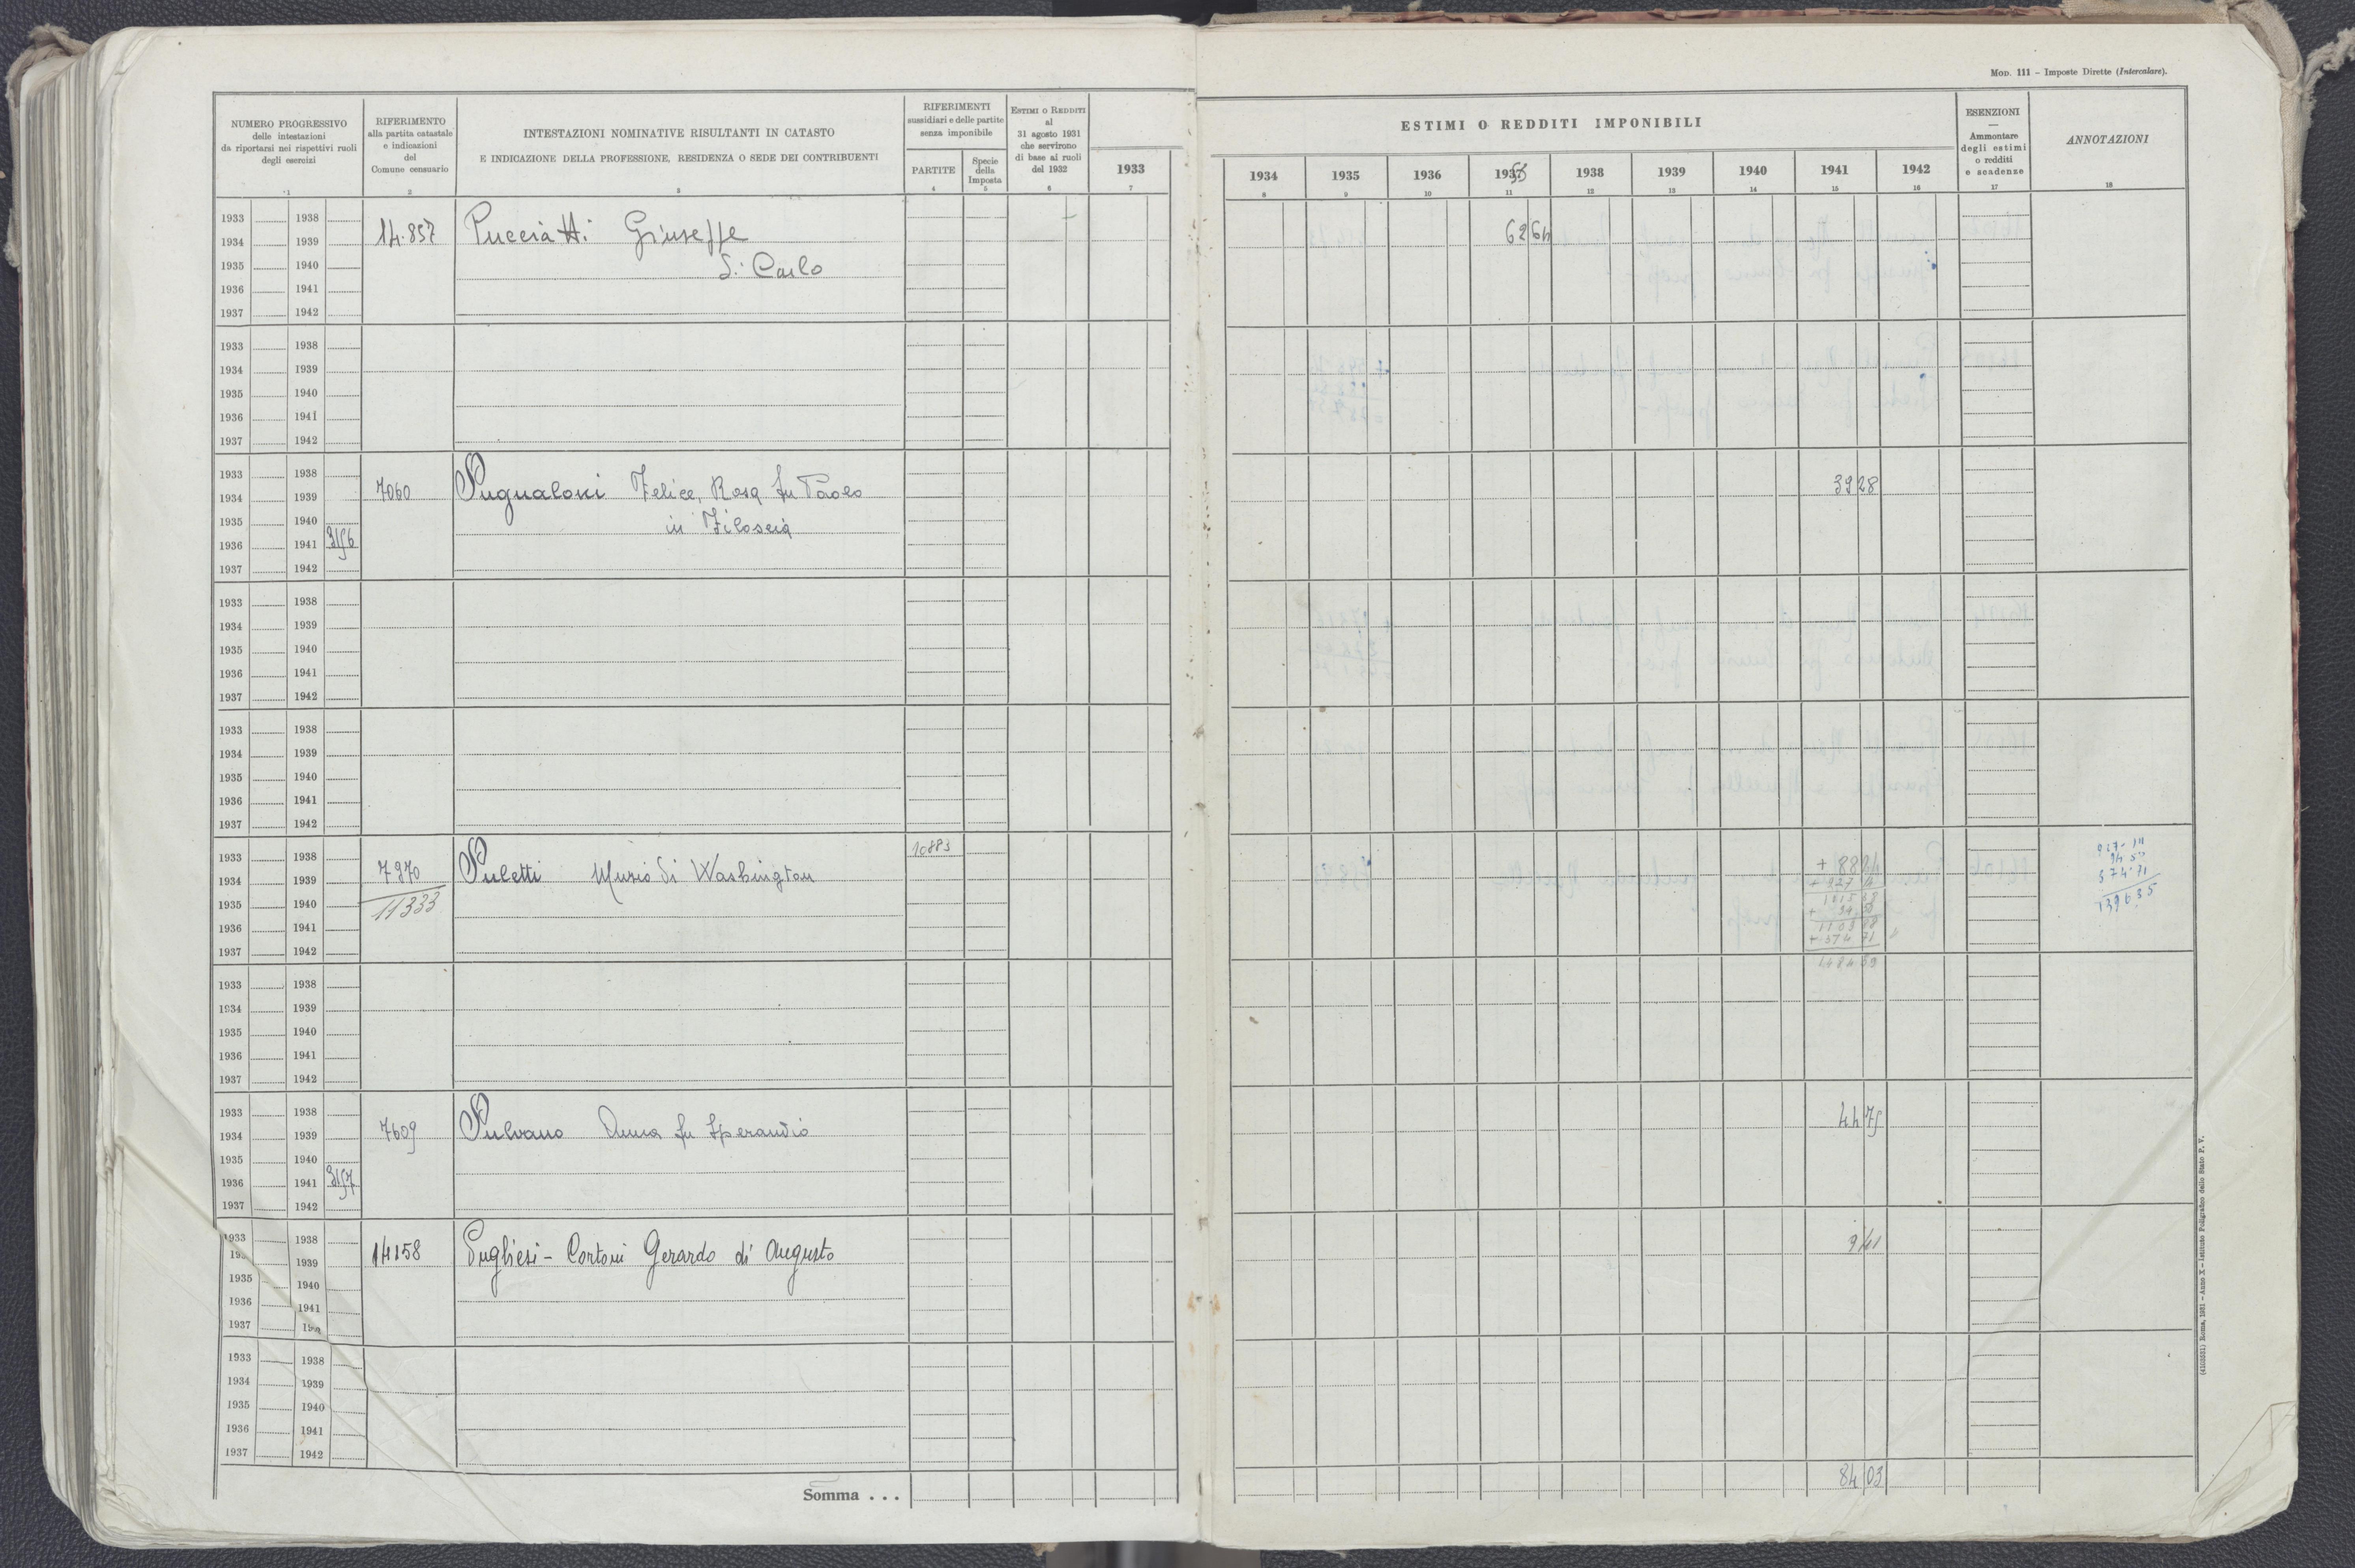 MOD. 111 – Imposte Dirette (Intercalare).
NUMERO PROGRESSIVO
delle intestazioni
da riportarsi nei rispettivi ruoli
degli esercizi
RIFERIMENTO
alla partita catastale
e indicazioni
del
Comune censuario
INTESTAZIONI NOMINATIVE RISULTANTI IN CATASTO
E INDICAZIONE DELLA PROFESSIONE, RESIDENZA O SEDE DEI CONTRIBUENTI
RIFERIMENTI
sussidiari e delle partite
senza imponibile
PARTITE
Specie
della
Imposta
ESTIMI O REDDITI
al
31 agosto 1931
che servirono
di base ai ruoli
del 1932
ESTIMI O REDDITI IMPONIBILI
1933 1934 1935 1936 1938 1939 1940 1941 1942
ESENZIONI
—
Ammontare
degli estimi
o redditi
e scadenze
ANNOTAZIONI
1 2 3 4 5 6 7 8 9 10 11 12 13 14 15 16 17 18
1933 1938
1934 1939 14.857 Pucciatti Giuseppe 62 64
1935 1940 di Carlo
1936 1941
1937 1942
1933 1938
1934 1939
1935 1940
1936 1941
1937 1942
1933 1938
1934 1939 7060 Pugnaloni Felice, Rosa fu Paolo 39 28
1935 1940 in Filoscia
1936 1941
1937 1942
1933 1938
1934 1939
1935 1940
1936 1941
1937 1942
1933 1938
1934 1939
1935 1940
1936 1941
1937 1942
1933 1938 10883
1934 1939 7970 Puletti Muzio di Washington + 88 24
1935 1940 11333
1936 1941
1937 1942 + 374 71
1933 1938
1934 1939
1935 1940
1936 1941
1937 1942
1933 1938
1934 1939 7609 Pulvano Anna fu Sperandio 44 75
1935 1940
1936 1941
1937 1942
1933 1938
1939 14158 Pugliesi - Cortoni Gerardo di Augusto 9 41
1935 1940
1936 1941
1937
1933 1938
1934 1939
1935 1940
1936 1941
1937 1942
Somma . . . 84 03
(4103531) Roma, 1931 – Anno X – Istituto Poligrafico dello Stato P. V.